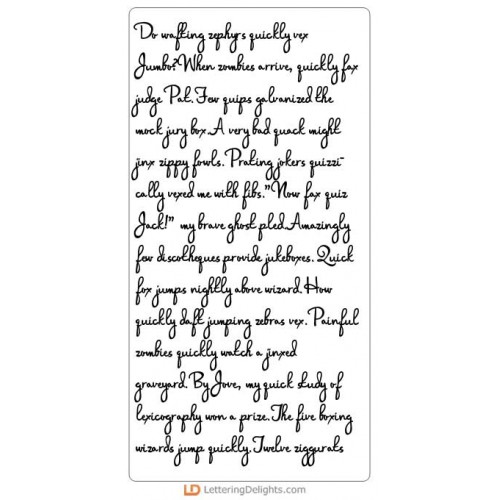 Do wafting zephyrs quickly vex
Jumbo? When zombies arrive, quickly fax
judge Pat. Few quips galvanized the
mock jury box. A very bad quack might
jinx zippy fowls. Prating jokers quizzi-
cally vexed me with fibs. "Now fax quiz
Jack!" my brave ghost pled. Amazingly
few discotheques provide jukeboxes. Quick
fox jumps nightly above wizard. How
quickly daft jumping zebras vex. Painful
zombies quickly watch a jinxed
graveyard. By Jove, my quick study of
lexicography won a prize. The five boxing
wizards jump quickly. Twelve ziggurats
LD LetteringDelights.com